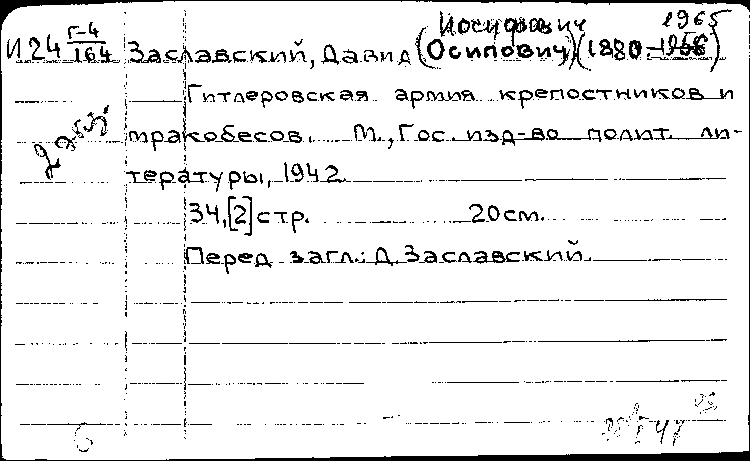 Иосифович 1965
И24 Г-4/164 Заславский, Давид (Осипович) (1880-1956)
Гитлеровская армия крепостников и
2 экз.
мракобесов. М., Гос. изд-во полит. ли-
тературы, 1942.
34, [2] стр. 20 см.
Перед загл.: Д. Заславский.
6